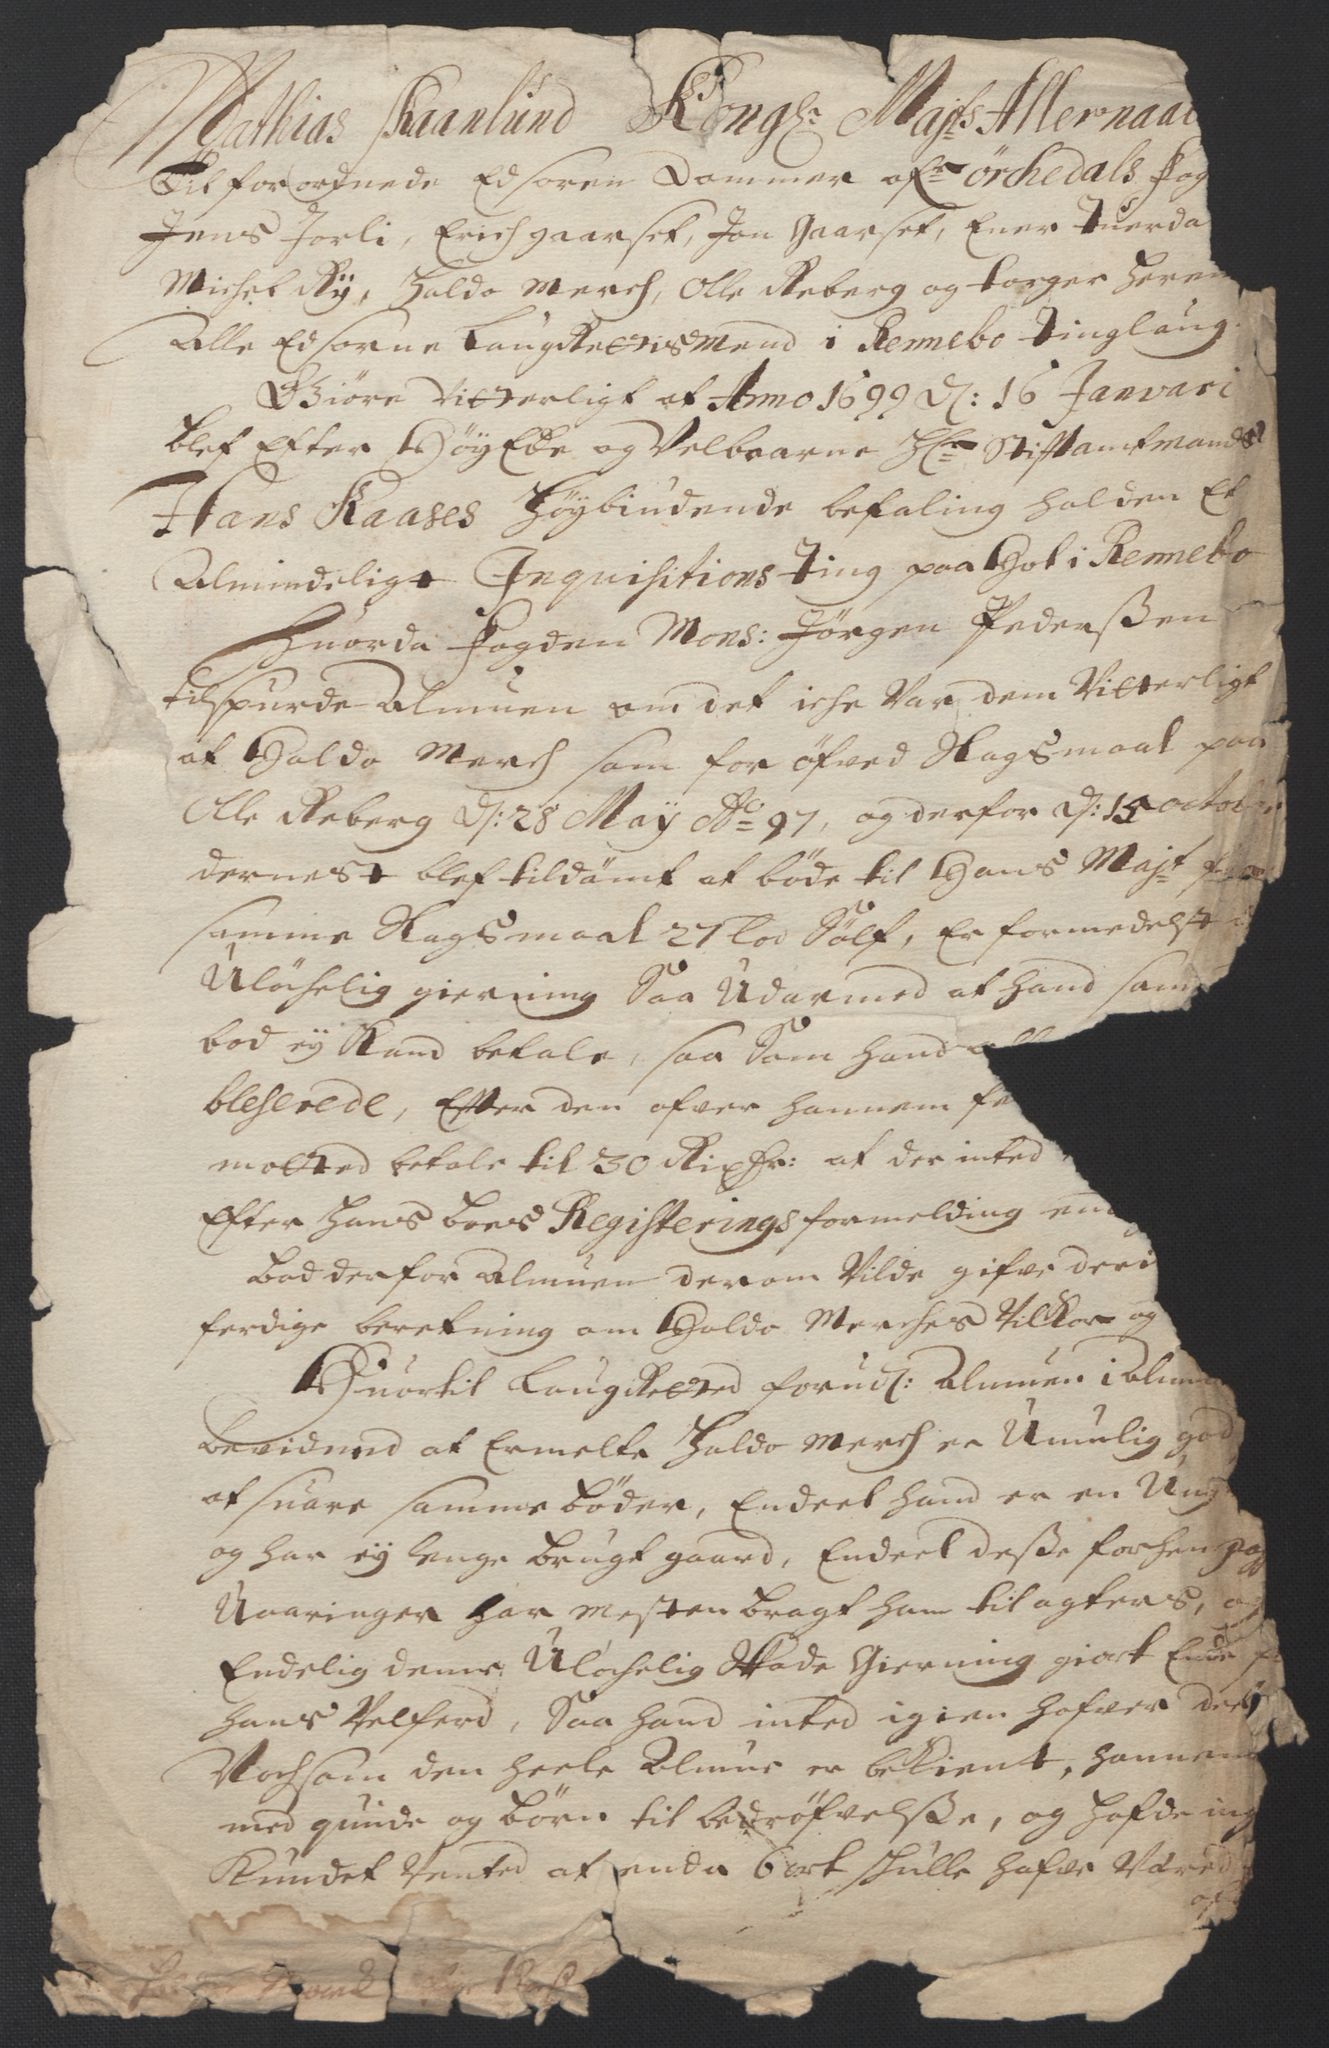 Mathias Skaanlund Kongl: Majts Allernaad
Tilforordnede Edsoren Dommer ofr örchedals fog
Jens Jorli, Erich gaarset, Jon Gaarset, Ener Tuerda
Michel Rÿ, Haldo Merch, Olle Reberg og torger Herem
Alle Edsorne Laugrettismend i Rennebo Tinglaug
Giöre Vitterligt at Anno 1699 d: 16 Januari
blef Efter HöyEdle og Velbaarne Hr Stiftamtmands
Hans Kaases Höybiudende befaling holden Et
Almindeligt Inquisitions Ting paa Hol i Rennebo
Huorda fogden Mons: Jörgen Pederßen
tilspurde Almuen om det iche Var dem Vitterligt
at Haldo Merch som for öfved Slagsmaal paa
Olle Reberg d: 28 Maÿ Ao 97, og derfor d: 15 octob
dernest blef tildömt at böde til Hans Majt for
samme Slagsmaal 27 lod Sölf, Er formedelst
Ulöchelig gierning Saa Udarmed at hand sam
bod eÿ Kand betale, saa Som hand
bleserede, Efter den ofver hannem
motted betale til 30 Rixdr: at der inted
Efter hans boes Registerings formelding
bad derfor Almuen derom Vilde gifve deris
ferdige beretning om Haldo Merches Vilkor og
Huortil Laugretted forudl: Almuen i Almin
bevidned at Ermelte Haldo Merch er Umulig
at suare samme böder, Endeel hand er en Ung
og har eÿ lenge brugt gaard, Endeel deße forhen
Uaaringer har mesten bragt ham til agters, og
Endelig denne Ulöchelig Skade Gierning giort Ende
hans Velferd, Saa hand inted igien hafver
Nochsom den heele Almue er bekient, hannem
med quinde og börn til bedröfvelße, og hafde ing
Kundet Vented at enda bort schulle hafve Vered